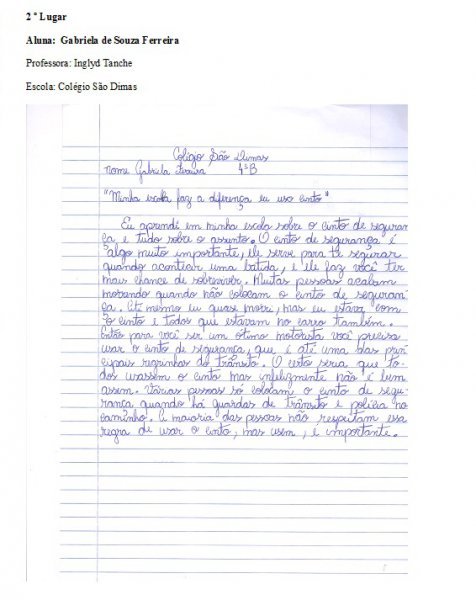 2 º Lugar
Aluna: Gabriela de Souza Ferreira
Professora: Inglyd Tanche
Escola: Colégio São Dimas
Colégio São Dimas
Nome Gabriela Ferreira 4ºB
"Minha escola faz a diferença eu uso cinto"
Eu aprendi em minha escola sobre o cinto de seguran
ça, e tudo sobre o assunto. O cinto de segurança é
algo muito importante, ele serve para te segurar
quando acontecer uma batida, e ele faz você ter
mais chance de sobreviver. Muitas pessoas acabam
morrendo quando não colocam o cinto de seguran-
ça. Até mesmo eu quase morri, mas eu estava com
o cinto e todos que estavam no carro também.
Então para você ser um ótimo motorista você precisa
usar o cinto de segurança, que é até uma das prin
cipais regrinhas do trânsito. O certo seria que to-
dos usassem o cinto mas infelizmente não é bem
assim. Várias pessoas só colocam o cinto de segu-
rança quando há guardas de trânsito e polícia no
caminho. A maioria das pessoas não respeitam essa
regra de usar o cinto, mas usem, é importante.